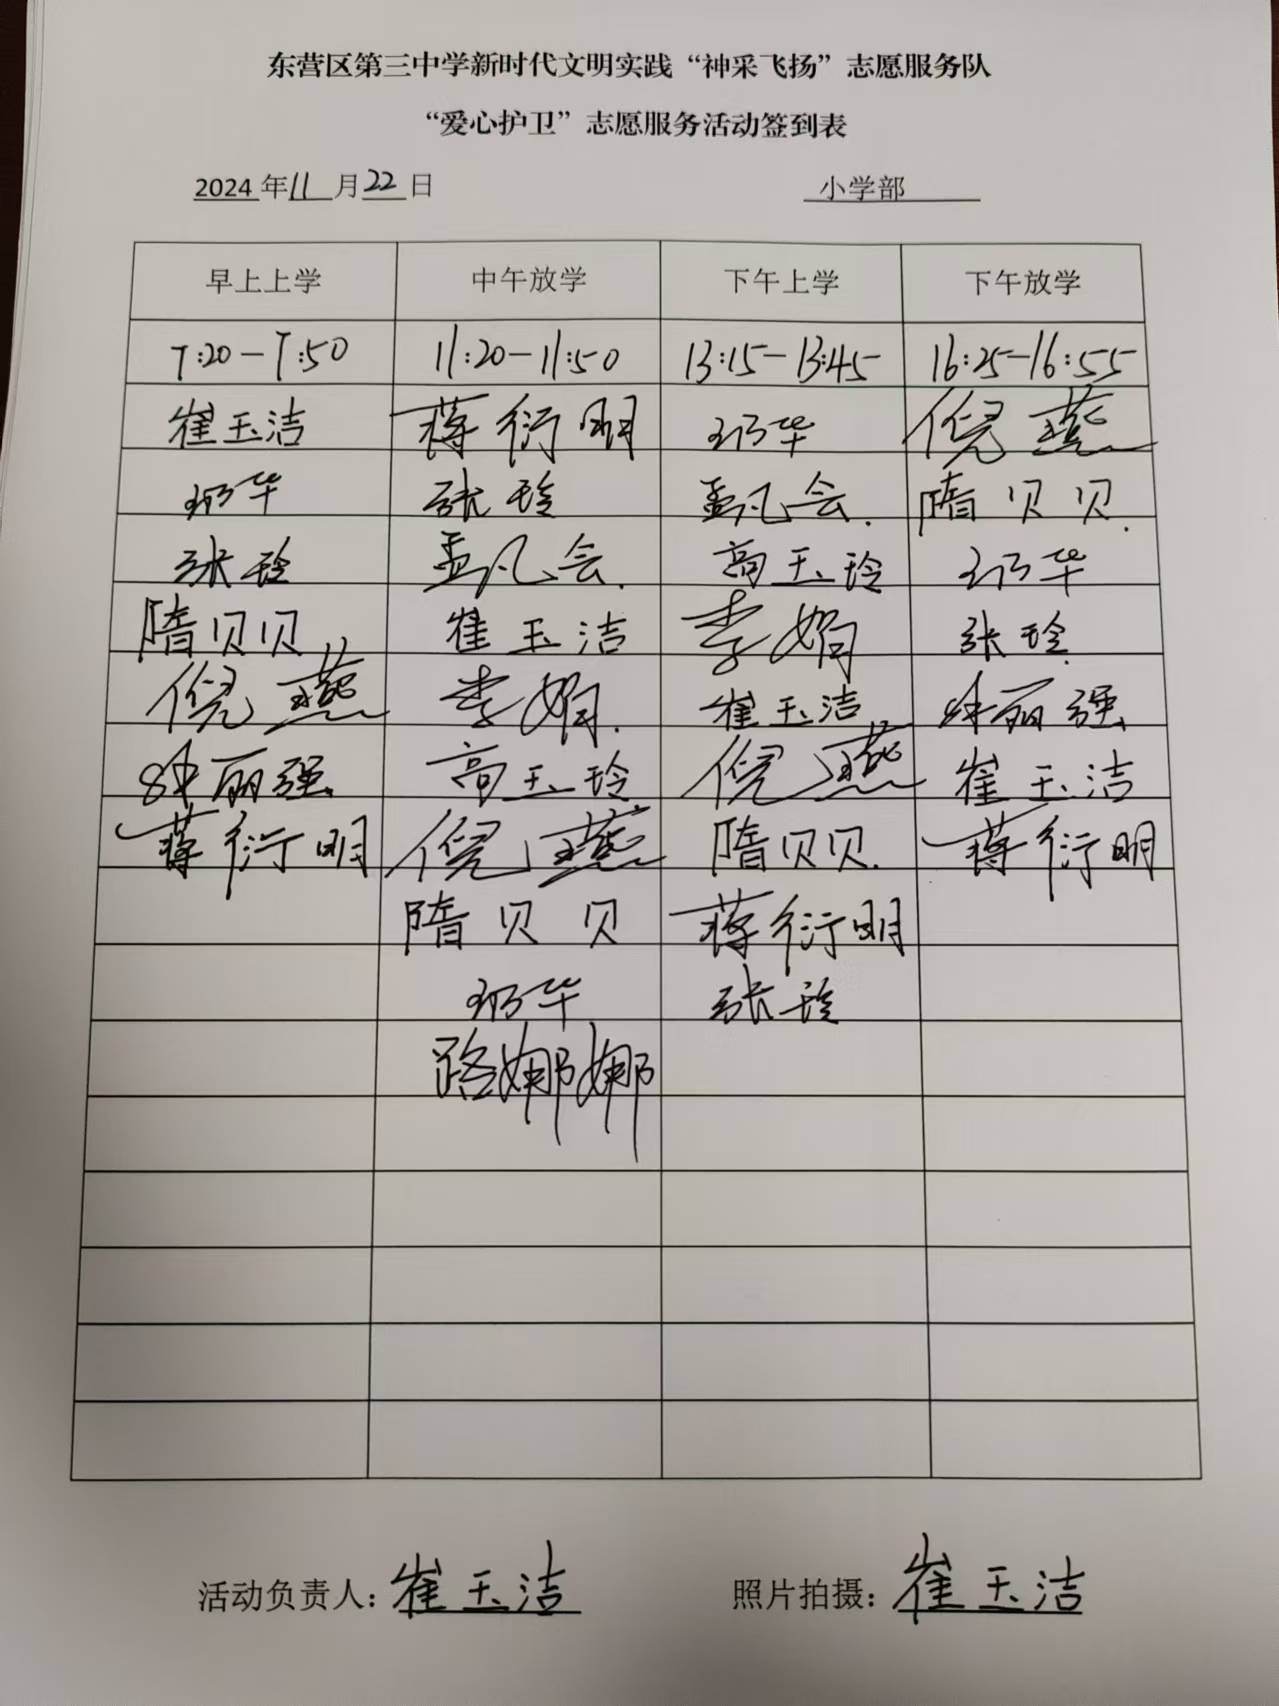 东营区第三中学新时代文明实践“神采飞扬”志愿服务队
“爱心护卫”志愿服务活动签到表
2024年11月22日 小学部
早上上学 中午放学 下午上学 下午放学
7:20-7:50 11:20-11:50 13:15-13:45 16:25-16:55
崔玉洁 蒋衍明 华 倪燕
华 张玲 孟凡会. 隋贝贝.
张玲 孟凡会. 高玉玲 华
隋贝贝. 崔玉洁 李娟 张玲.
倪燕 李娟. 崔玉洁 丽强
丽强 高玉玲 倪燕 崔玉洁
蒋衍明 倪燕 隋贝贝. 蒋衍明
隋贝贝 蒋衍明
华 张玲
路娜娜
活动负责人：崔玉洁 照片拍摄：崔玉洁